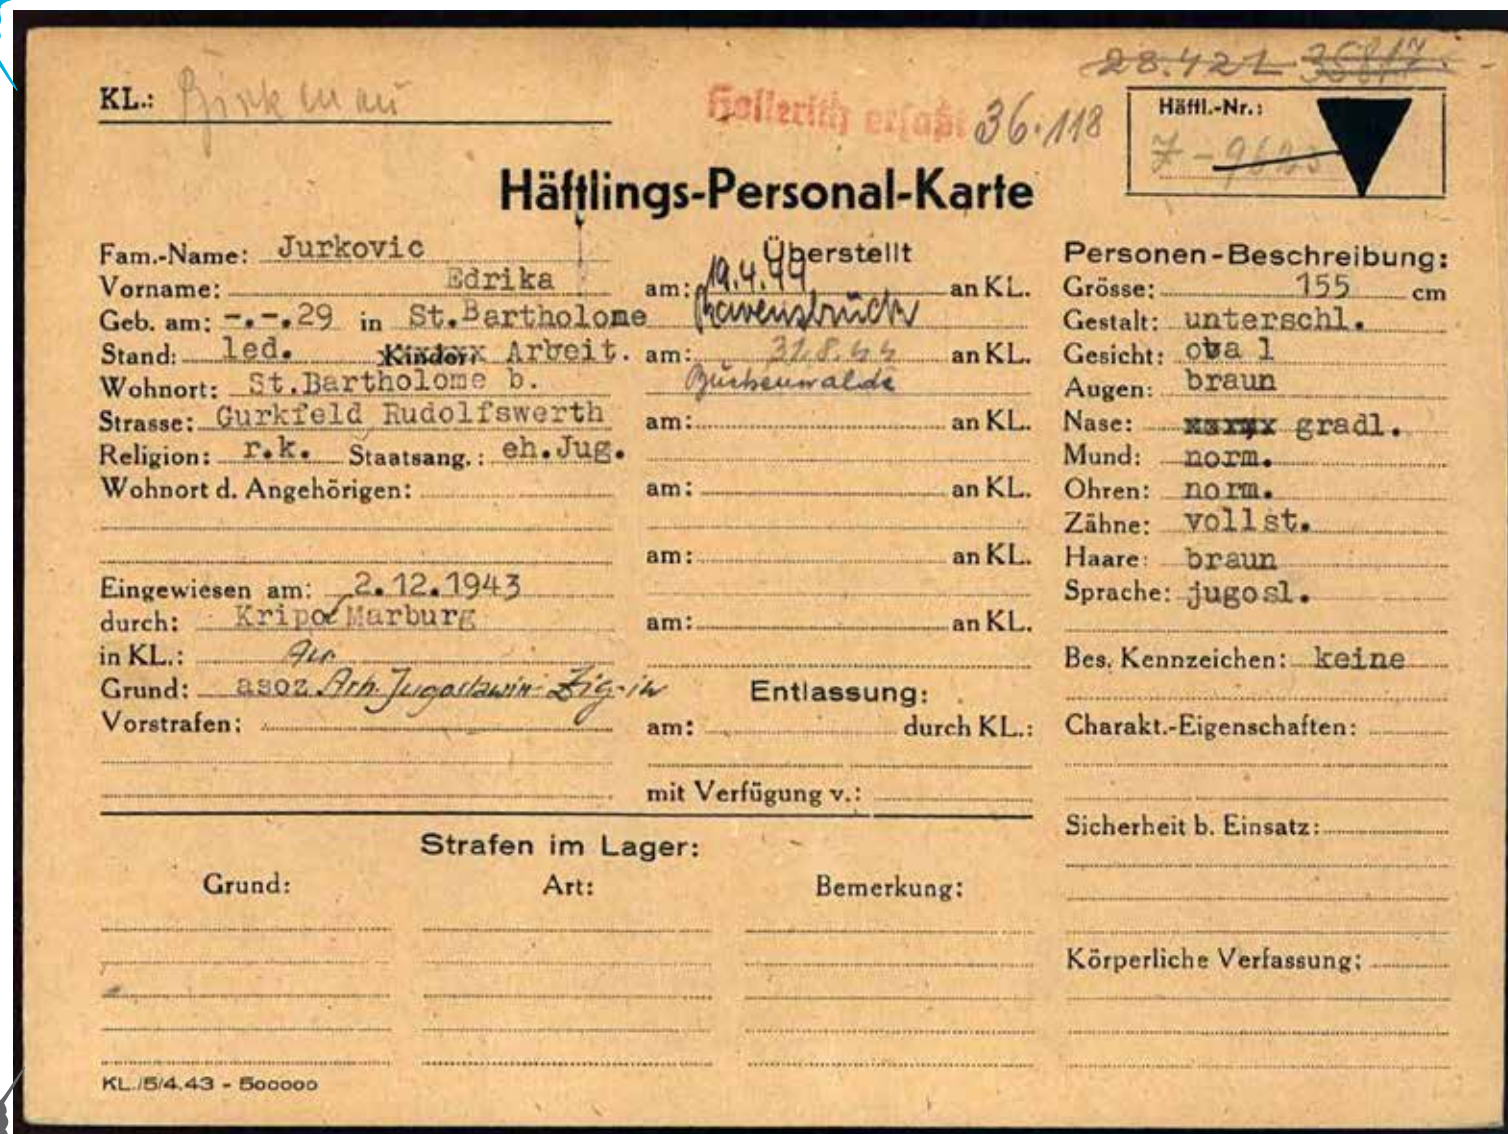 28.421 35817
KL.: Birkenau
Hollerith erfaßt 36.118
Häftl.-Nr.:
Z-9623
Häftlings-Personal-Karte
Fam.-Name: Jurkovic
Vorname: Edrika
Geb. am: -.-.29 in St.Bartholome
Stand: led. Kinder: Arbeit.
Wohnort: St.Bartholome b.
Strasse: Gurkfeld Rudolfswerth
Religion: r.k. Staatsang.: eh.Jug.
Wohnort d. Angehörigen:
Eingewiesen am: 2.12.1943
durch: Kripo Marburg
in KL.: Au
Grund: asoz. Arb. Jugoslawin Zig-in
Vorstrafen:
Überstellt
am: 19.4.44 an KL.
Ravensbrück
am: 31.8.44 an KL.
Buchenwalde
am: an KL.
am: an KL.
am: an KL.
am: an KL.
Entlassung:
am: durch KL.:
mit Verfügung v.:
Personen-Beschreibung:
Grösse: 155 cm
Gestalt: unterschl.
Gesicht: oval
Augen: braun
Nase: gradl.
Mund: norm.
Ohren: norm.
Zähne: vollst.
Haare: braun
Sprache: jugosl.
Bes. Kennzeichen: keine
Charakt.-Eigenschaften:
Sicherheit b. Einsatz:
Körperliche Verfassung:
Strafen im Lager:
Grund: Art: Bemerkung:
KL./5/4.43 - 500000